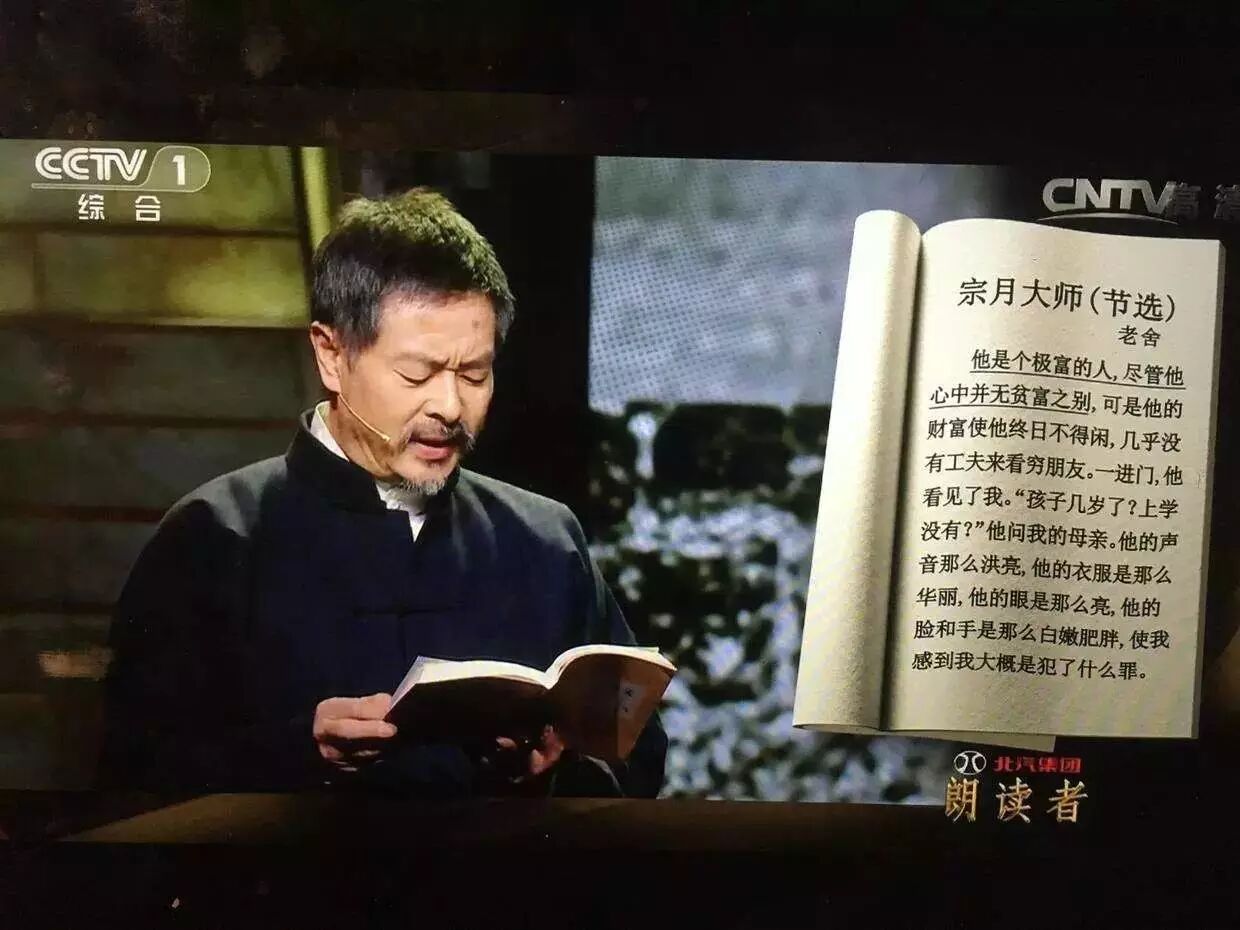 CCTV 1
综合
CNTV高清
宗月大师(节选)
老舍
他是个极富的人,尽管他
心中并无贫富之别,可是他的
财富使他终日不得闲,几乎没
有工夫来看穷朋友。一进门,他
看见了我。“孩子几岁了?上学
没有?”他问我的母亲。他的声
音那么洪亮,他的衣服是那么
华丽,他的眼是那么亮,他的
脸和手是那么白嫩肥胖,使我
感到我大概是犯了什么罪。
北汽集团
朗读者